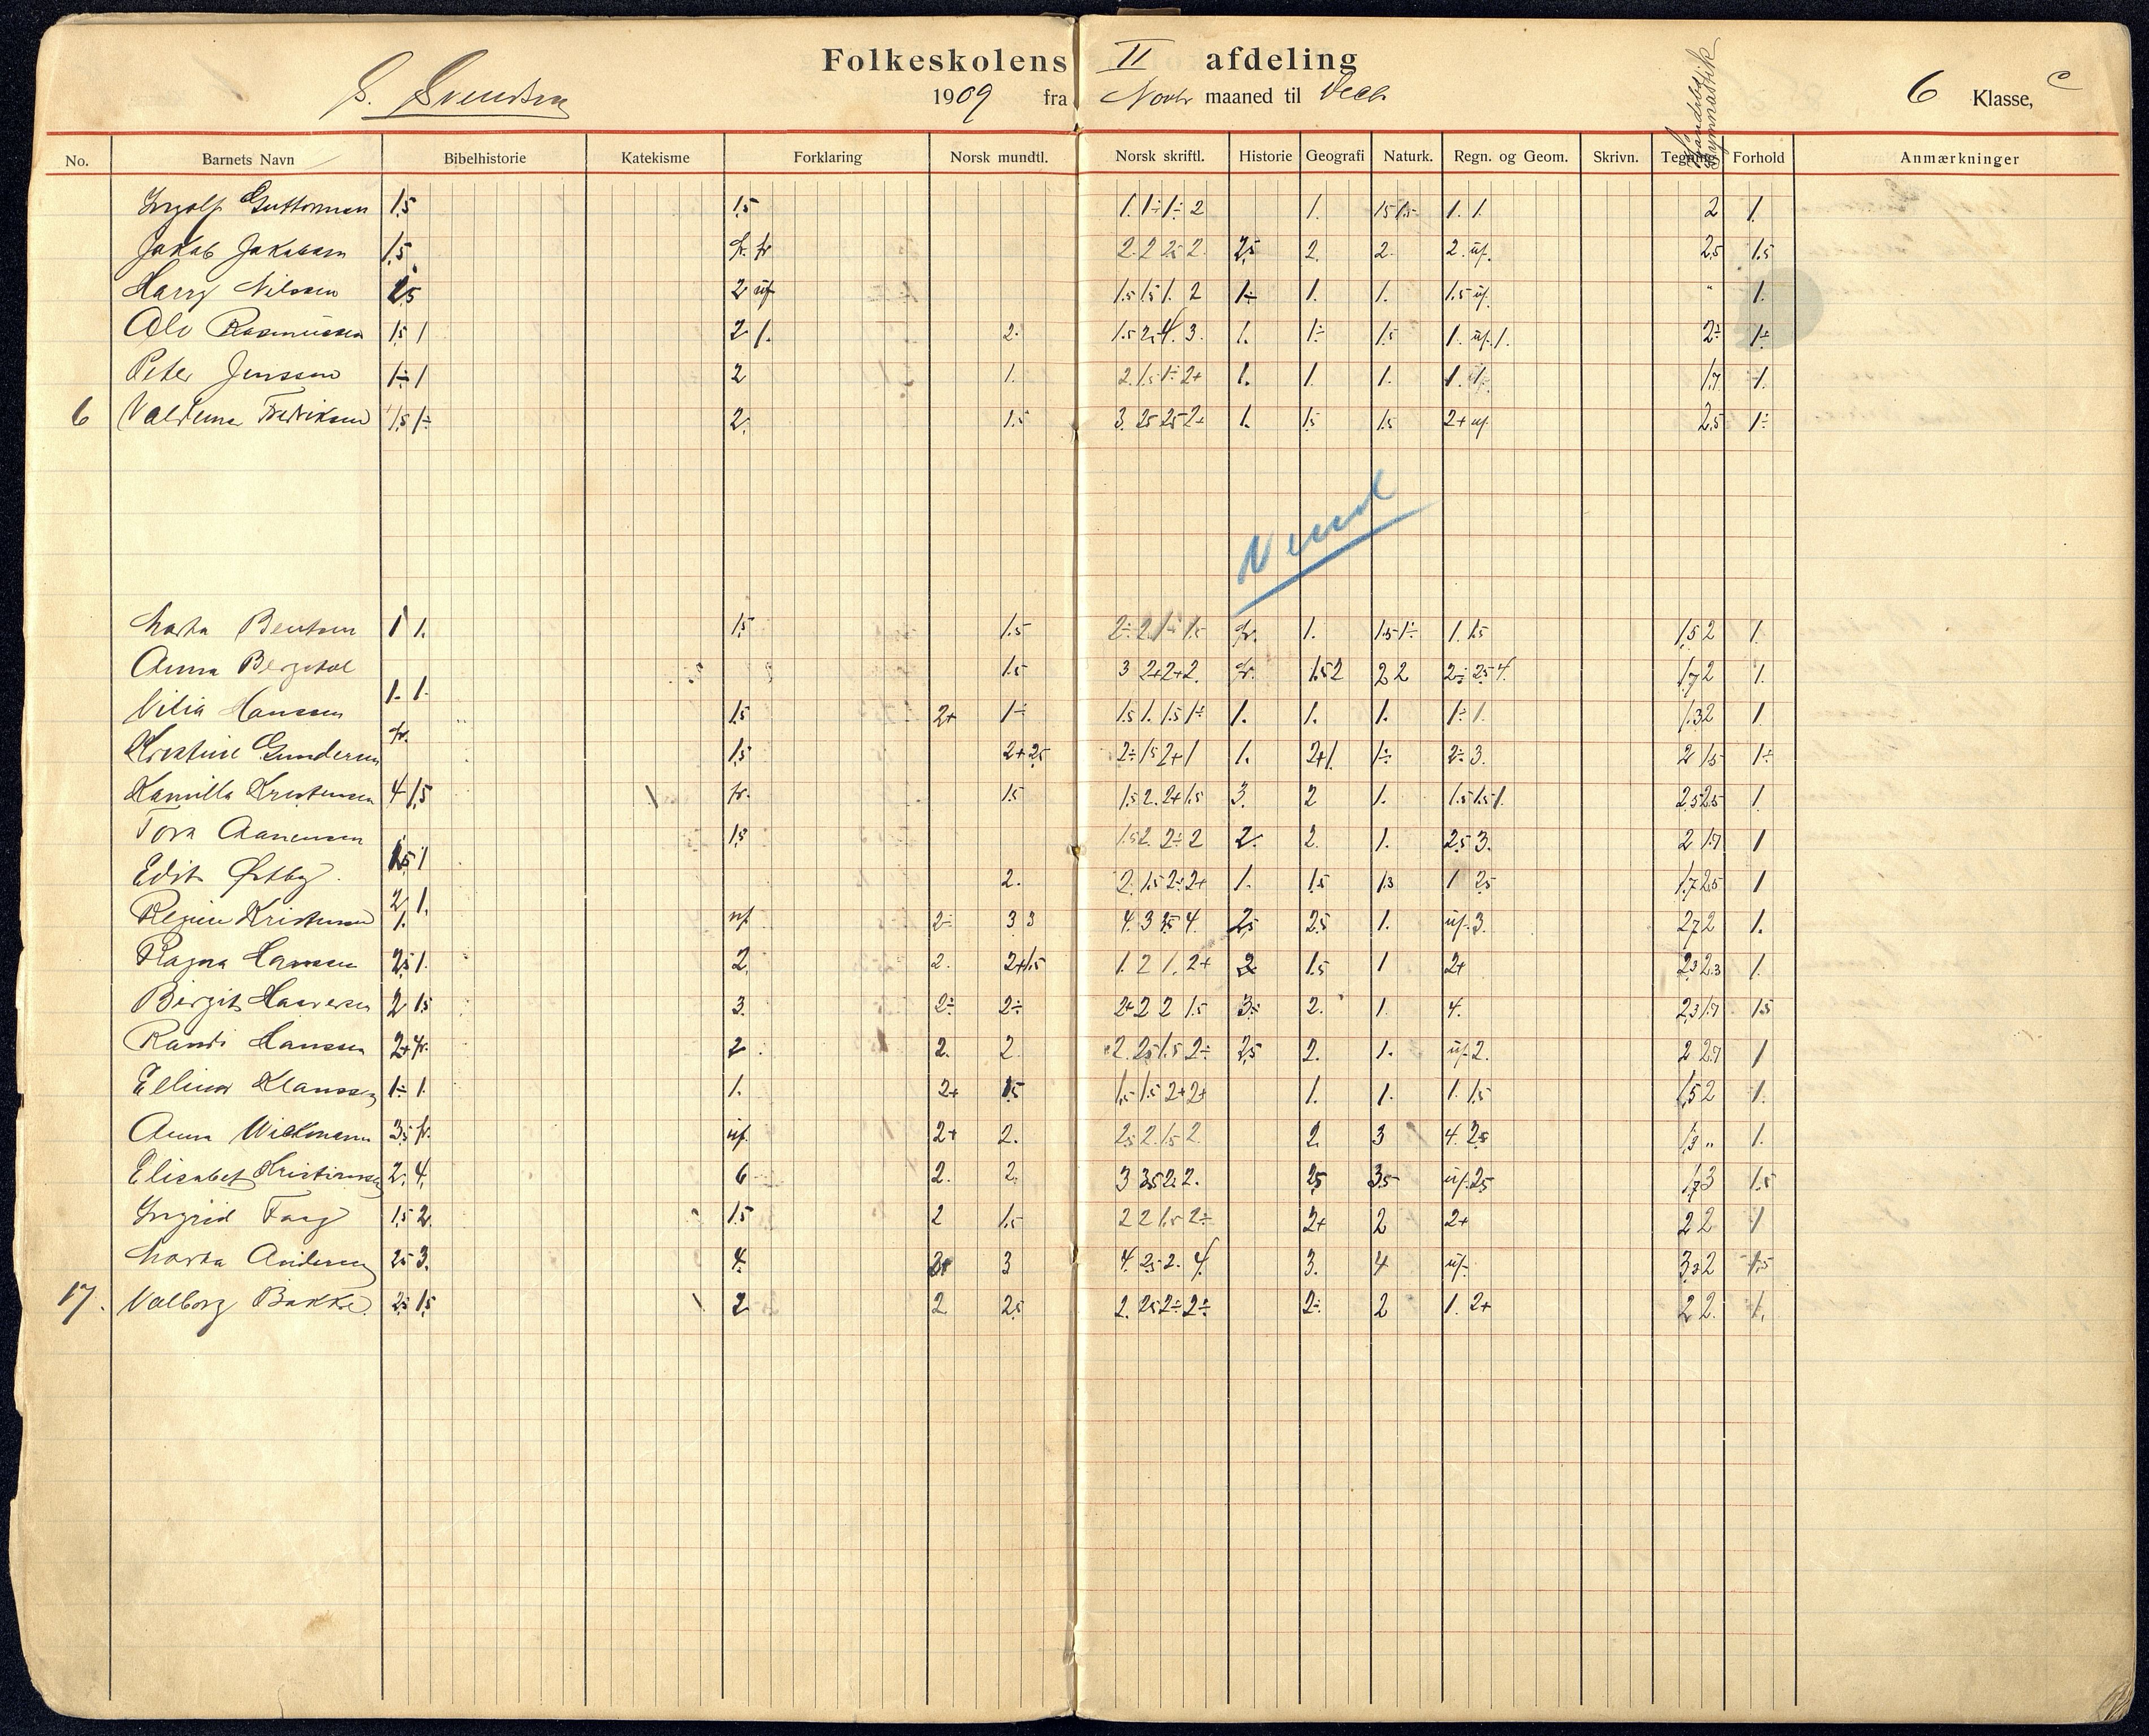 Folkeskolens II afdeling
S. Svendsen 1909 fra Novbr maaned til Decb 6 Klasse, c
Haandarbeid Gymnastik
No. Barnets Navn Bibelhistorie Katekisme Forklaring Norsk mundtl. Norsk skriftl. Historie Geografi Naturk. Regn. og Geom. Skrivn. Tegning Forhold Anmærkninger
Ingolf Guttormsen 1.5 1.5 1. 1÷ 1÷ 2 1. 1.5 1.5 1. 1. 2 1.
Jakob Jakobsen 1.5 fr. fr 2. 2 2.5 2. 2.5 2. 2. 2. uf. 2.5 1.5
Harry Nilssen 2 uf 1.5 1.5 1. 2 1÷ 1. 1. 1.5 uf. " 1.
Alv Rasmussen 1.5 1 2 1. 2. 1.5 2.5 4. 3. 1. 1÷ 1.5 1. uf. 1. 2÷ 1÷
Peter Jenssen 1÷ 1 2 1. 2. 1.5 1÷ 2+ 1. 1. 1. 1. 1. 1.7 1.
6 Valdemar Fredriksen 1.5 1÷ 2. 1.5 3. 2.5 2.5 2+ 1. 1.5 1.5 2+ uf 2.5 1÷
Marta Bentsen 1 1. 1.5 1.5 2÷ 2. 1÷ 1.5 fr. 1. 1.5 1÷ 1. 1.5 1.5 2 1.
Anna Bergstøl 1.5 3 2+ 2+ 2. fr. 1.5 2 2 2 2÷ 2.5 4. 1.7 2 1.
1. 1.
Vilia Hanssen 1.5 2+ 1÷ 1.5 1. 1.5 1÷ 1. 1. 1. 1÷ 1. 1.3 2 1
fr.
Kristine Gundersen 1.5 2+ 2.5 2÷ 1.5 2+ 1 1. 2+ 1. 1÷ 2÷ 3. 2 1.5 1÷
Kamilla Kristensen 4 1.5 fr. 1.5 1.5 2. 2+ 1.5 3. 2 1. 1.5 1.5 1. 2.5 2.5 1.
Tora Aanensen 1.5 1.5 2 2÷ 2 2. 2. 1. 2.5 3. 2 1.7 1
1.5 1
Edit Østby. 2. 2. 1.5 2÷ 2+ 1. 1.5 1.3 1 2.5 1.7 2.5 1
2 1.
Regine Kristensen 1. uf 2÷ 3 3 4. 3 3.5 4. 2.5 2.5 1. uf. 3. 2.7 2 1.
Ragna Hanssen 2.5 1. 2. 2. 2+ 1.5 1. 2 1. 2+ 2 1.5 1 2+ 2.3 2.3 1.
Birgit Haaversen 2 1.5 3. 2÷ 2÷ 2+ 2 2 1.5 3.5 2. 1. 4. 2.3 1.7 1.5
Randi Hanssen 2+ fr. 2. 2. 2. 2. 2.5 1.5 2÷ 2.5 2. 1. uf. 2. 2 2.7 1
Ellinor Klaussen 1÷ 1. 1. 2+ 1.5 1.5 1.5 2+ 2+ 1. 1. 1. 1.5 1.5 2 1.
Anna Wickmann 3.5 fr. uf. 2+ 2. 2.5 2. 1.5 2. 2. 3 4. 2.5 1.3 " 1.
Elisabet Kristiansen 2. 4. 6 2. 2. 3 3.5 2. 2. 2.5 3.5 uf. 2.5 1.7 3 1.5
Ingrid Faag 1.5 2. 1.5 2 1.5 2 2 1.5 2÷ 2+ 2 2+ 2 2 1
Marta Andersen 2.5 3. 4. 3 4. 2.5 2. 4. 3. 4 uf. 3.3 2 1.5
17. Valborg Bakke. 2.5 1.5 2 2 2.5 2. 2.5 2÷ 2÷ 2÷ 2 1. 2+ 2 2. 1.